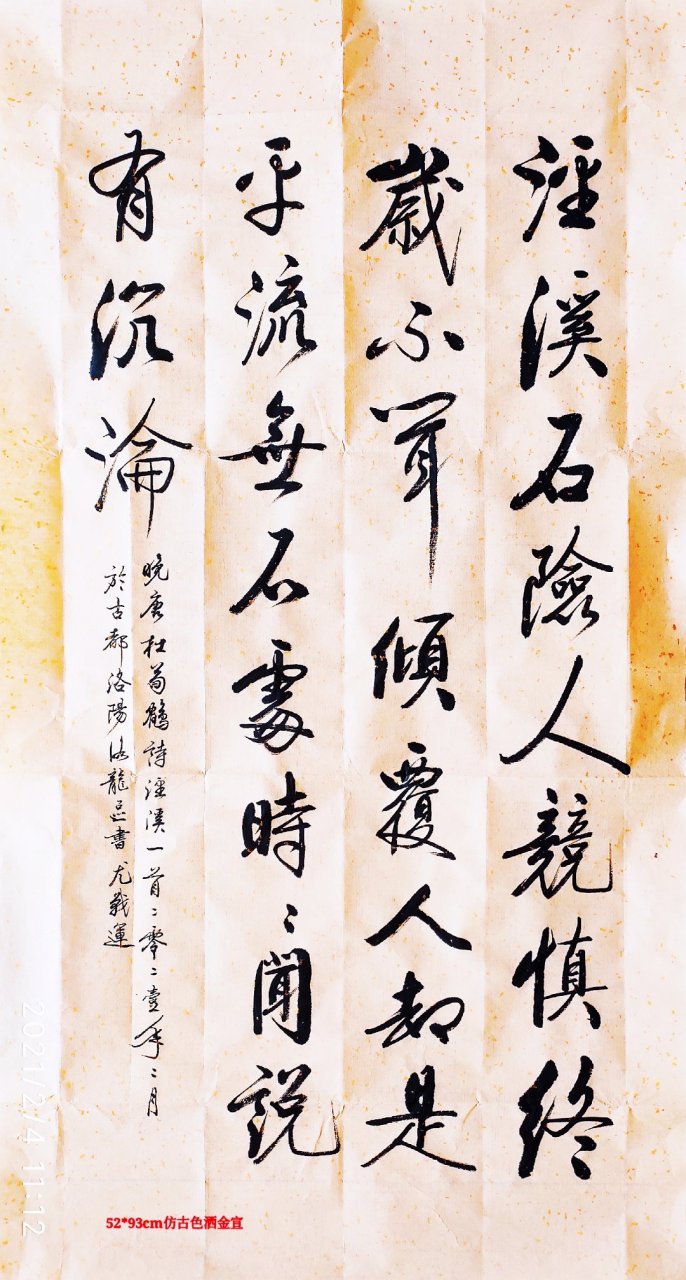 涇溪石險人競慎終
歲不聞傾覆人却是
平流無石處時〻聞説
有沉淪
晚唐杜荀鶴詩涇溪一首二零二壹年二月
於古都洛陽洛龍區書尤戰運
2021/2/4 11:12
52*93cm仿古色洒金宣